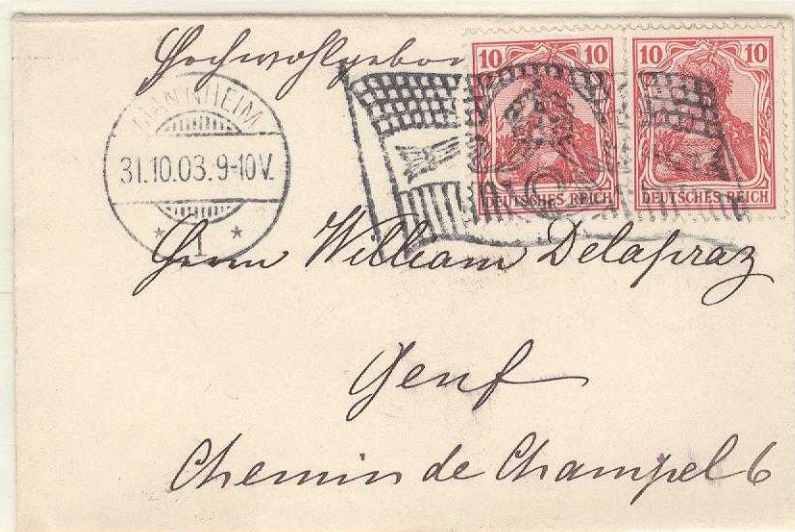 Hochwohlgebor
10 10
MANNHEIM
31.10.03.9-10V.
* 1 *
DEUTSCHES REICH DEUTSCHES REICH
Herrn William Delapraz
Genf
Chemin de Champel 6